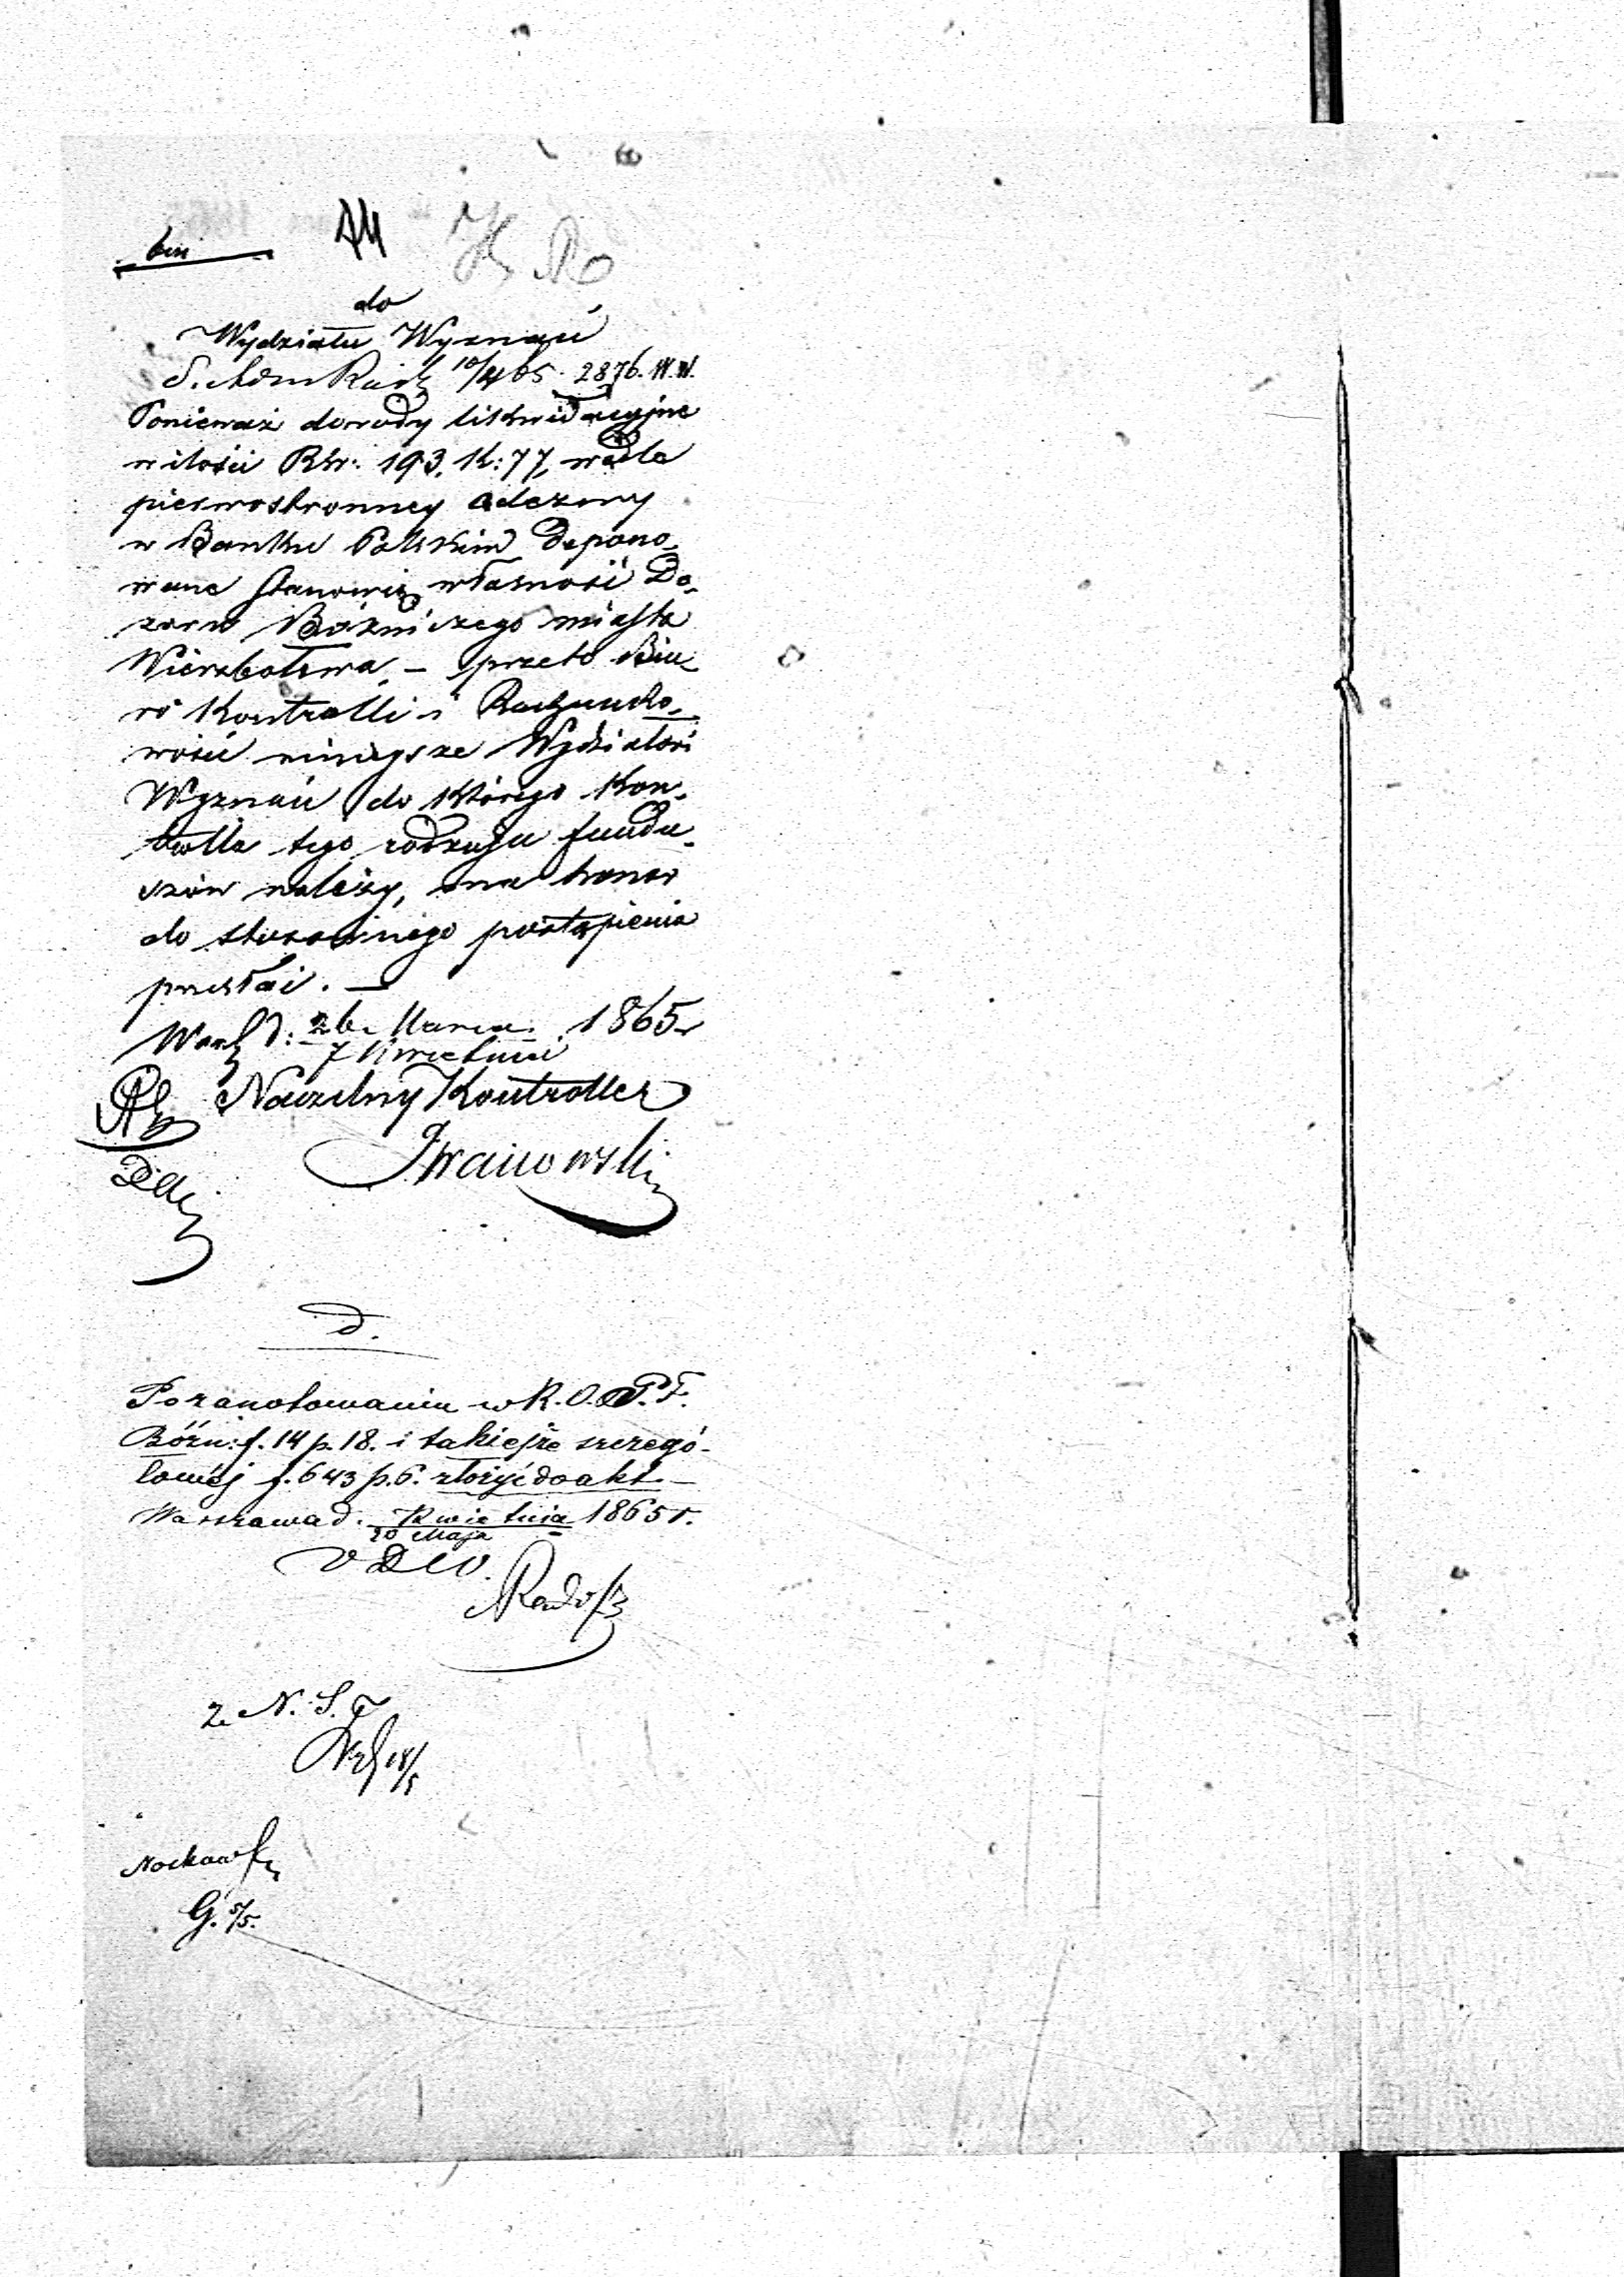 do
Wydziału Wyznań
10/4 65. 2876. W.W.
Ponieważ dowody likwidacyjne
w ilości Rsr: 193. K: 77, wedle
pierwostronney odezwy
w Banku Polskim depono-
wane stanowią własność Do-
zoru Bóżniczego miasta
Wierzbołowa, – przeto Biu-
ro Kontrolli i Rachunko-
wości niniejsze Wydziałowi
Wyznań do którego Kon-
trolla tego rodzaju fundu-
szów należy, ma honor
do stosownego postąpienia
przesłać. –
Warsz d: 26 Marca 1865
7 Kwietnia
Naczelny Kontroller
Iwanowski
D.
Po zanotowaniu w K. O. P. F.
Bóżn: f. 14 p. 18. i takiejże szczegó-
łowéj f. 643 p. 6. złożyć do akt. –
Warszawa d. Kwietnia 1865 r.
20 Maja
Z N. S. F
18/5
G. 5/5.